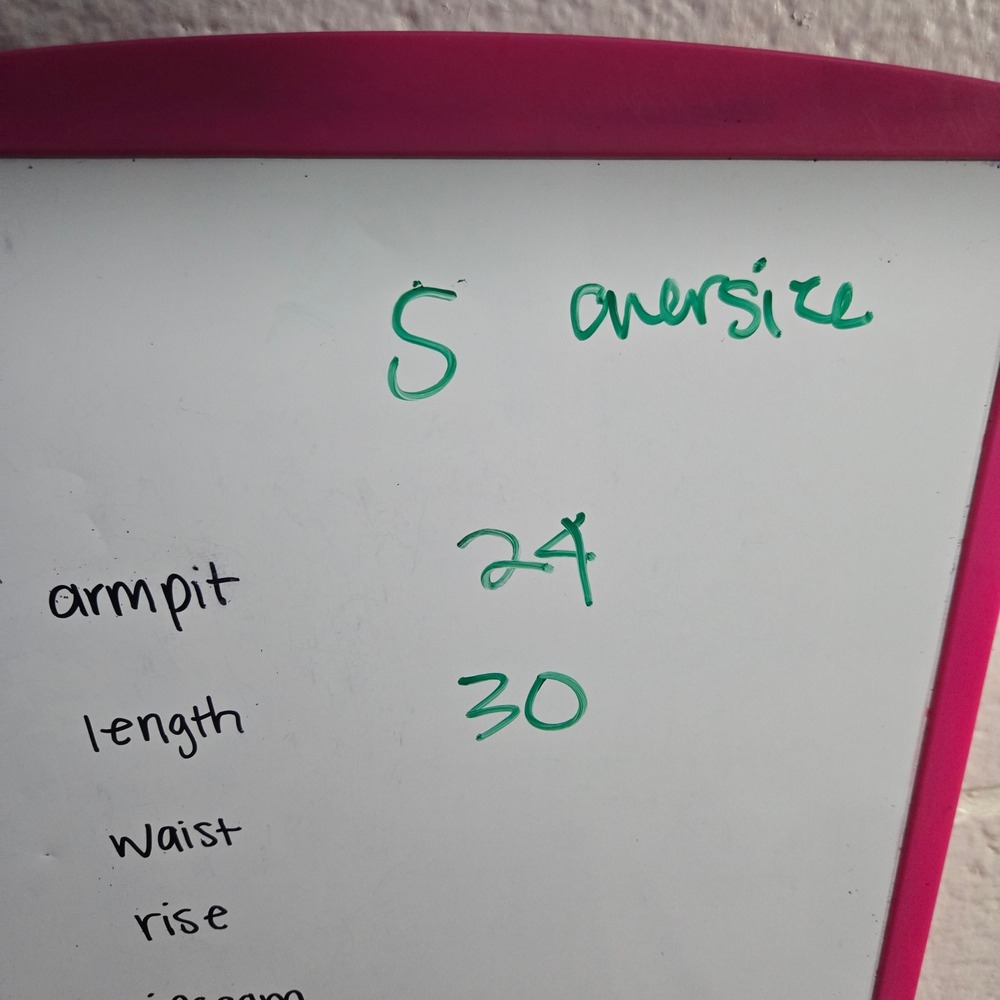 S oversize
armpit 24
length 30
waist
rise
inseam